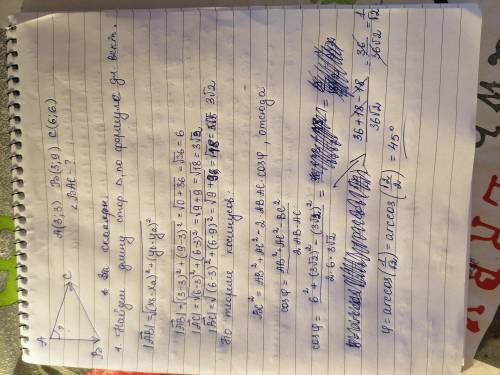 A
C
B
?
A(3;3) B(3;9) C(6;6)
∠BAC ?
1. Найдём длину стор Δ, по формуле дл. вект.
|AB| = √(x₂-x₁)² + (y₂-y₁)²
|AB| = √(3-3)² + (9-3)² = √0 + 36 = √36 = 6
|AC| = √(6-3)² + (6-3)² = √9 + 9 = √18 = 3√2
= √(6-3)² + (6-9)² = √9 + 9 = √18 = 3√2
По теореме косинусов:
= AB² + AC² - 2·AB·AC·cosφ, отсюда
cosφ = AB² + AC² - BC² / 2·AB·AC
cosφ = 6² + (3√2)² - (3√2)² / 2·6·3√2 =
36 + 18 - 18 / 36√2 = 36 / 36√2 = 1 / √2
φ = arccos(1/√2) = arccos(√2/2) = 45°